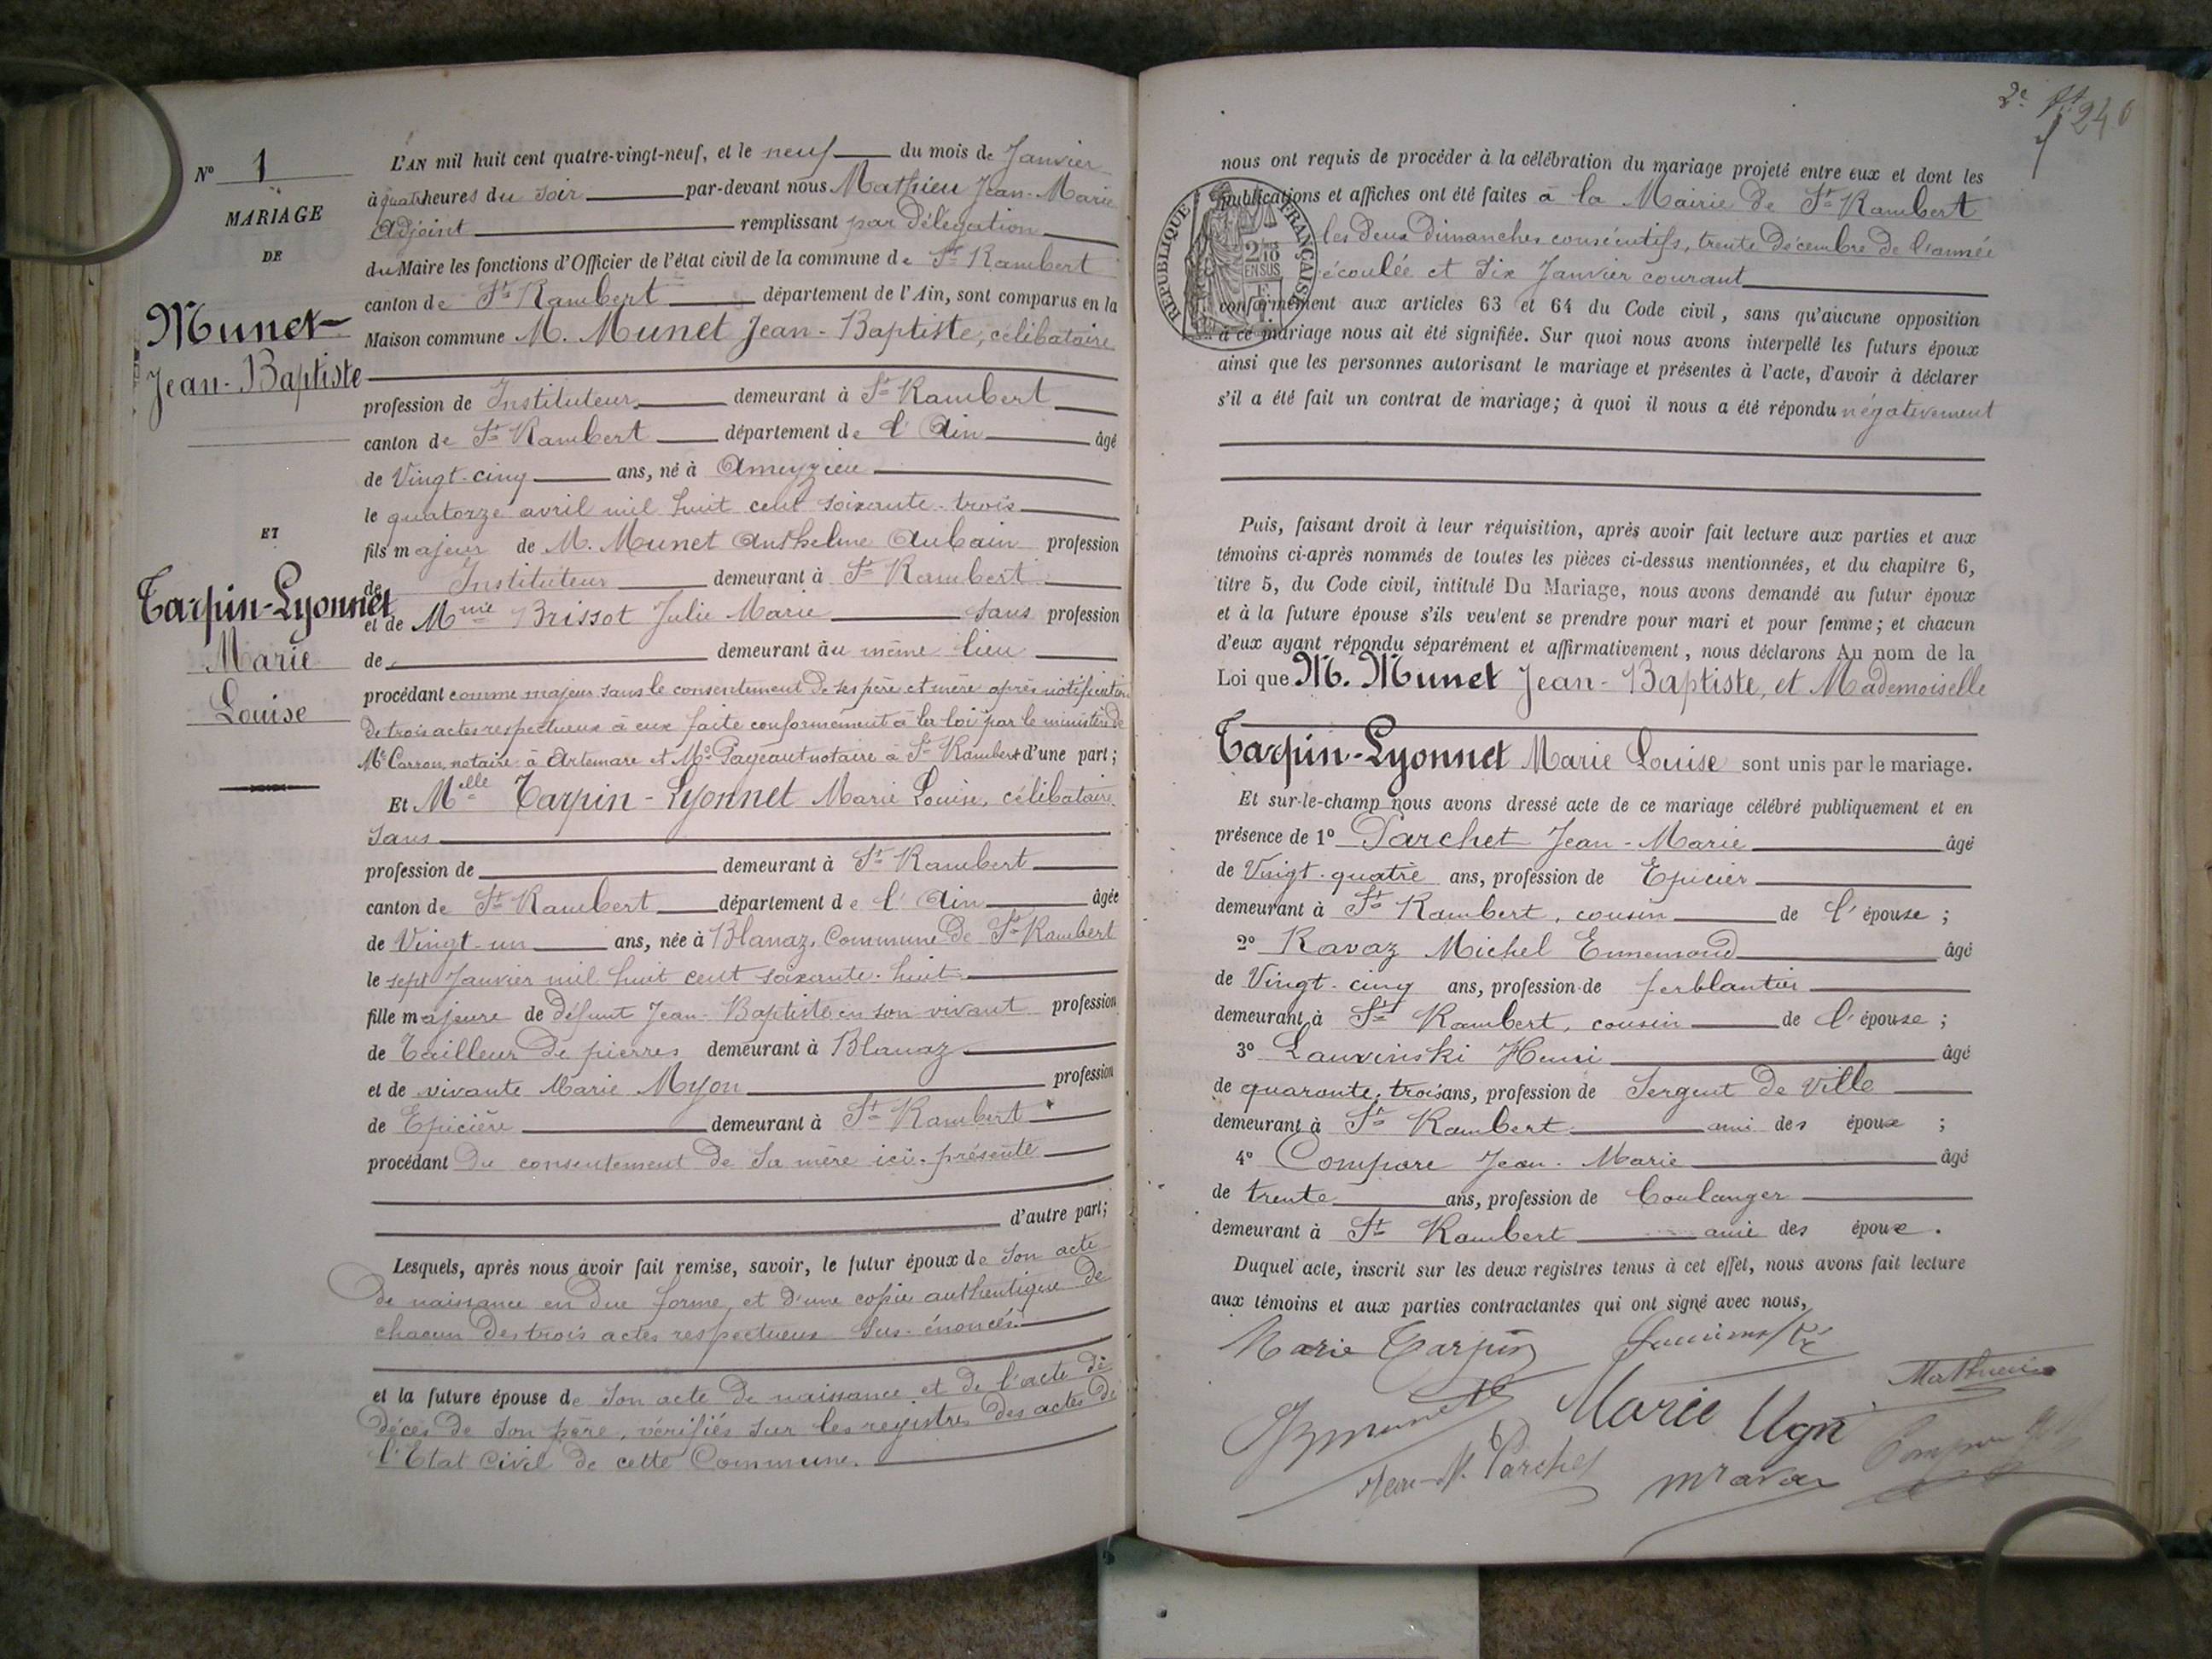 N° 1
MARIAGE
DE
Munet
Jean-Baptiste
ET
Tarpin-Lyonnet
Marie
Louise
L'AN mil huit cent quatre-vingt-neuf, et le neuf du mois de Janvier
à quatre heures du soir par-devant nous Mathieu Jean-Marie
Adjoint remplissant par Délégation
du Maire les fonctions d'Officier de l'état civil de la commune de St Rambert
canton de St Rambert département de l'Ain, sont comparus en la
Maison commune M. Munet Jean-Baptiste, célibataire
profession de Instituteur demeurant à St Rambert
canton de St Rambert département de l'Ain âgé
de Vingt-cinq ans, né à Ameyzieu
le quatorze avril mil huit cent soixante-trois
fils majeur de M. Munet Anthelme Aubain profession
de Instituteur demeurant à St Rambert
et de Mme Brissot Julie Marie sans profession
de demeurant au même lieu
procédant comme majeur sans le consentement de ses père et mère après notification
de trois actes respectueux à eux faite conformément à la loi par le ministère de
Me Carron, notaire à Artemare et Me Pageaut notaire à St Rambert d'une part;
Et Melle Tarpin-Lyonnet Marie Louise, célibataire
sans
profession de demeurant à St Rambert
canton de St Rambert département de l'Ain âgée
de Vingt-un ans, née à Blanaz, Commune de St Rambert
le sept Janvier mil huit cent soixante-huit
fille majeure de défunt Jean-Baptiste en son vivant profession
de Tailleur de pierres demeurant à Blanaz
et de vivante Marie Myon profession
de Epicière demeurant à St Rambert
procédant du consentement de sa mère ici-présente
d'autre part;
Lesquels, après nous avoir fait remise, savoir, le futur époux de son acte
de naissance en due forme, et d'une copie authentique de
chacun des trois actes respectueux sus-énoncés.
et la future épouse de son acte de naissance et de l'acte de
décès de son père, vérifiés sur les registres des actes de
l'Etat Civil de cette Commune.
2e
240
nous ont requis de procéder à la célébration du mariage projeté entre eux et dont les
publications et affiches ont été faites à la Mairie de St Rambert
les deux Dimanches consécutifs, trente Décembre de l'année
écoulée et six Janvier courant
RÉPUBLIQUE FRANÇAISE
2/10
EN SUS
conformément aux articles 63 et 64 du Code civil, sans qu'aucune opposition
à ce mariage nous ait été signifiée. Sur quoi nous avons interpellé les futurs époux
ainsi que les personnes autorisant le mariage et présentes à l'acte, d'avoir à déclarer
s'il a été fait un contrat de mariage; à quoi il nous a été répondu négativement
Puis, faisant droit à leur réquisition, après avoir fait lecture aux parties et aux
témoins ci-après nommés de toutes les pièces ci-dessus mentionnées, et du chapitre 6,
titre 5, du Code civil, intitulé Du Mariage, nous avons demandé au futur époux
et à la future épouse s'ils veulent se prendre pour mari et pour femme; et chacun
d'eux ayant répondu séparément et affirmativement, nous déclarons Au nom de la
Loi que M. Munet Jean-Baptiste, et Mademoiselle
Tarpin-Lyonnet Marie Louise sont unis par le mariage.
Et sur-le-champ nous avons dressé acte de ce mariage célébré publiquement et en
présence de 1° Parchet Jean-Marie âgé
de Vingt-quatre ans, profession de Epicier
demeurant à St Rambert, cousin de l'épouse;
2° Ravaz Michel Ennemond âgé
de Vingt-cinq ans, profession de ferblantier
demeurant à St Rambert, cousin de l'épouse;
3° Lauvinski Henri âgé
de quarante-trois ans, profession de Sergent de Ville
demeurant à St Rambert ami des époux;
4° Compare Jean-Marie âgé
de trente ans, profession de boulanger
demeurant à St Rambert ami des époux.
Duquel acte, inscrit sur les deux registres tenus à cet effet, nous avons fait lecture
aux témoins et aux parties contractantes qui ont signé avec nous,
Marie Tarpin
Mathieu
Marie Ugn
Jean-M. Parchet
mravaz